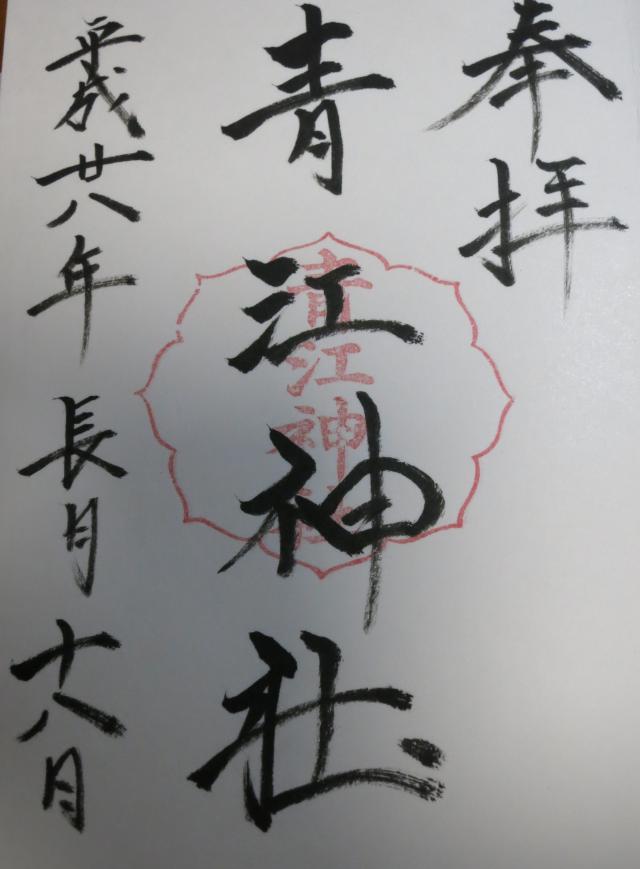 奉拝
青江神社
青江神社
平成廿八年 長月 十八月